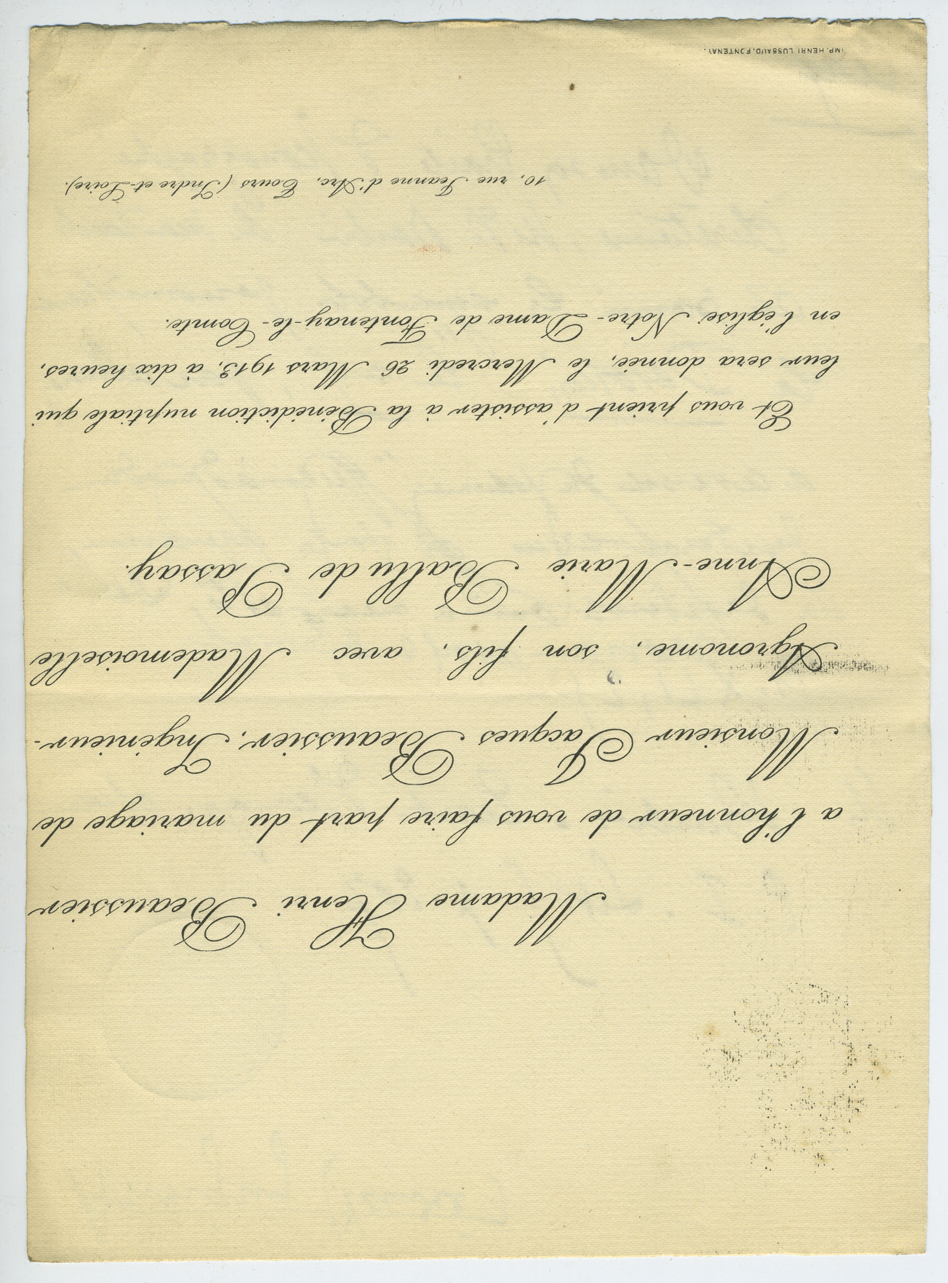 Madame Henri Beaussier
a l'honneur de vous faire part du mariage de
Monsieur Jacques Beaussier, Ingénieur-
Agronome, son fils, avec Mademoiselle
Anne-Marie Ballu de Passay.
Et vous prient d'assister à la Bénédiction nuptiale qui
leur sera donnée, le Mercredi 26 Mars 1913, à dix heures,
en l'église Notre-Dame de Fontenay-le-Comte.
10, rue Jeanne d'Arc, Tours (Indre et-Loire).
IMP. HENRI LUSSAUD, FONTENAY.